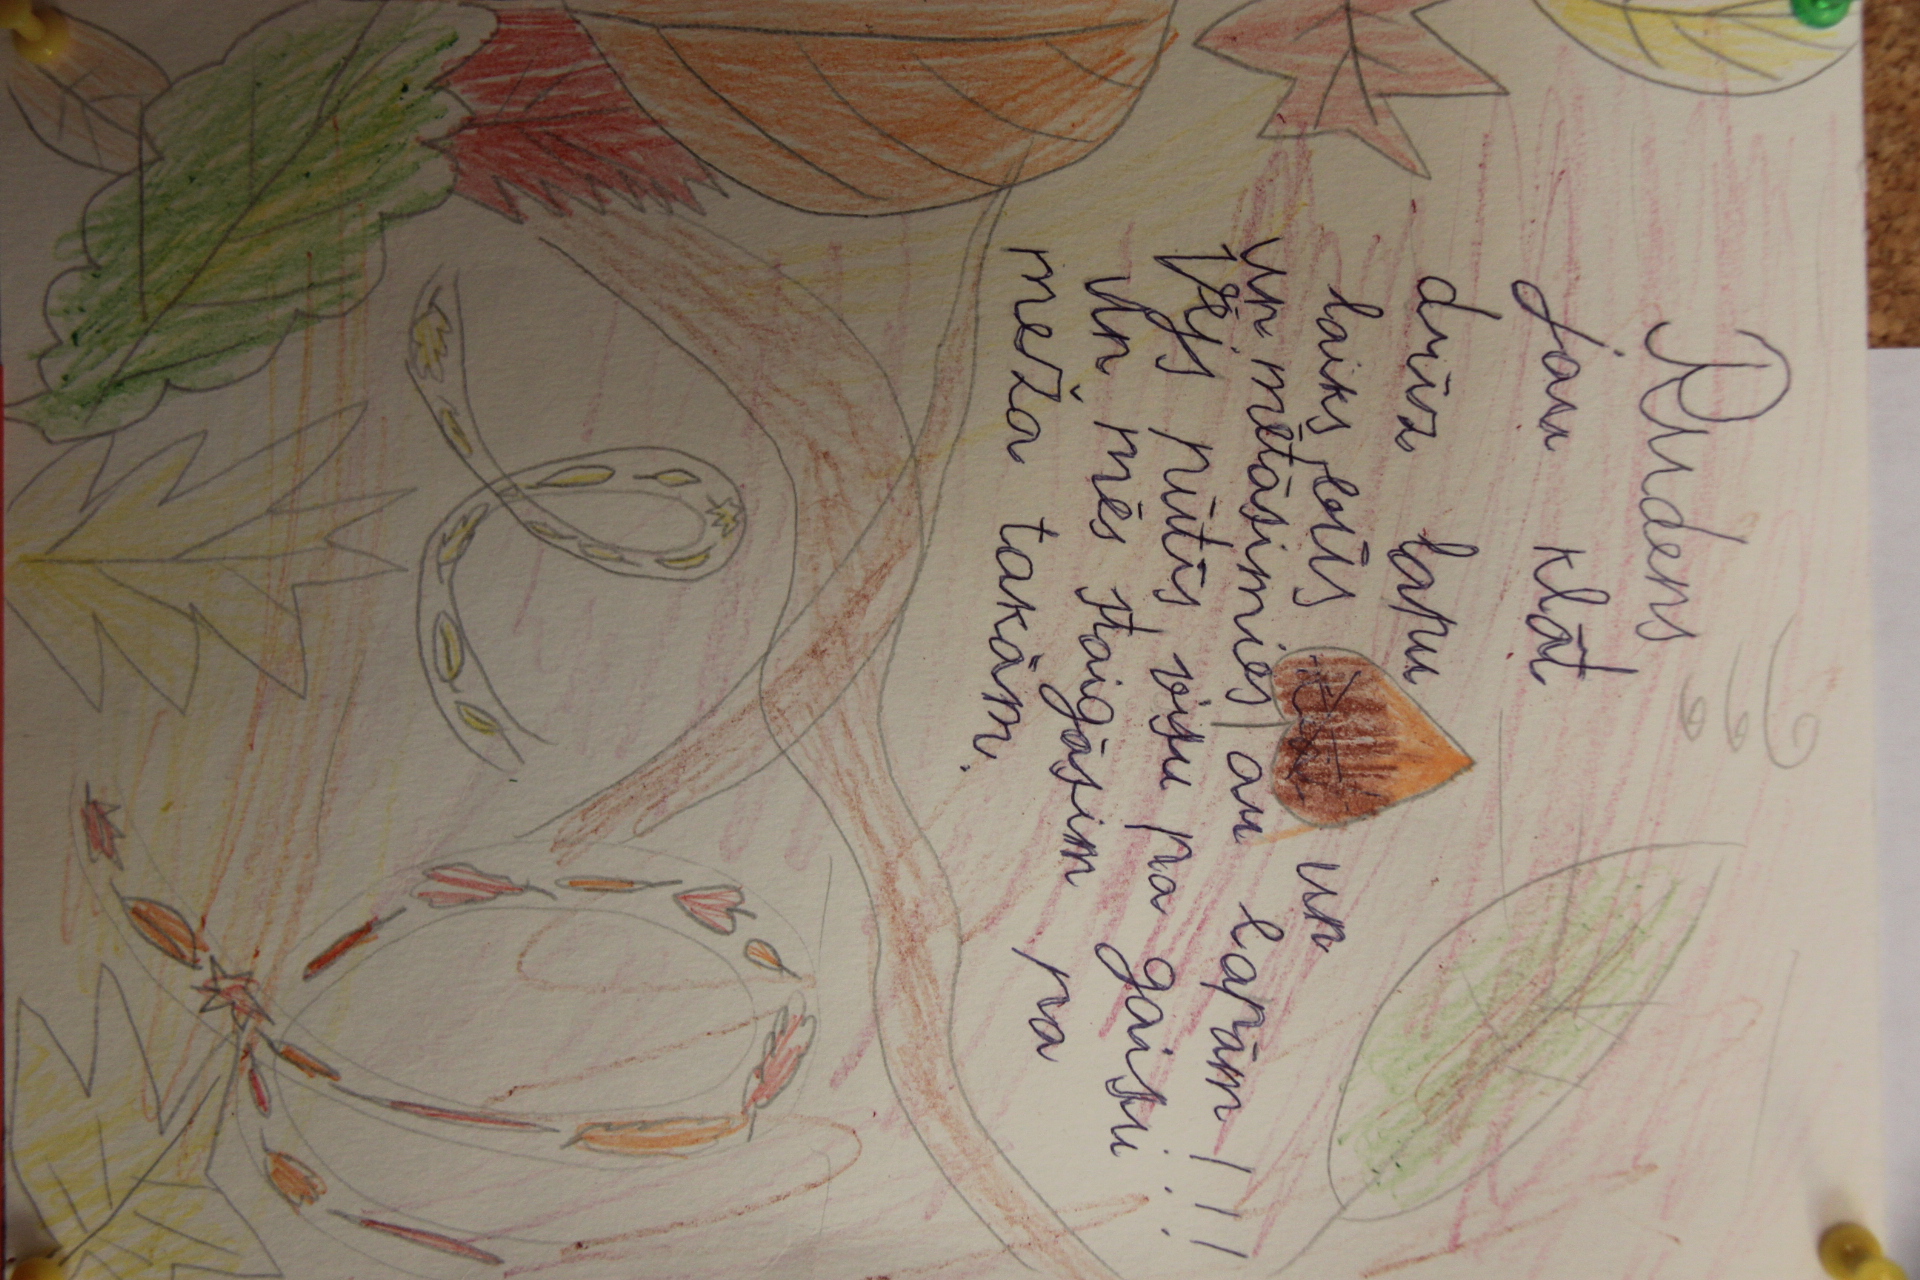 Rudens
jau klāt
drīz lapu
laiks būs un
un mētāsimies au lapām!!!
Vējš pūtīs visu pa gaisu!!
Un mēs staigāsim pa
meža takām.